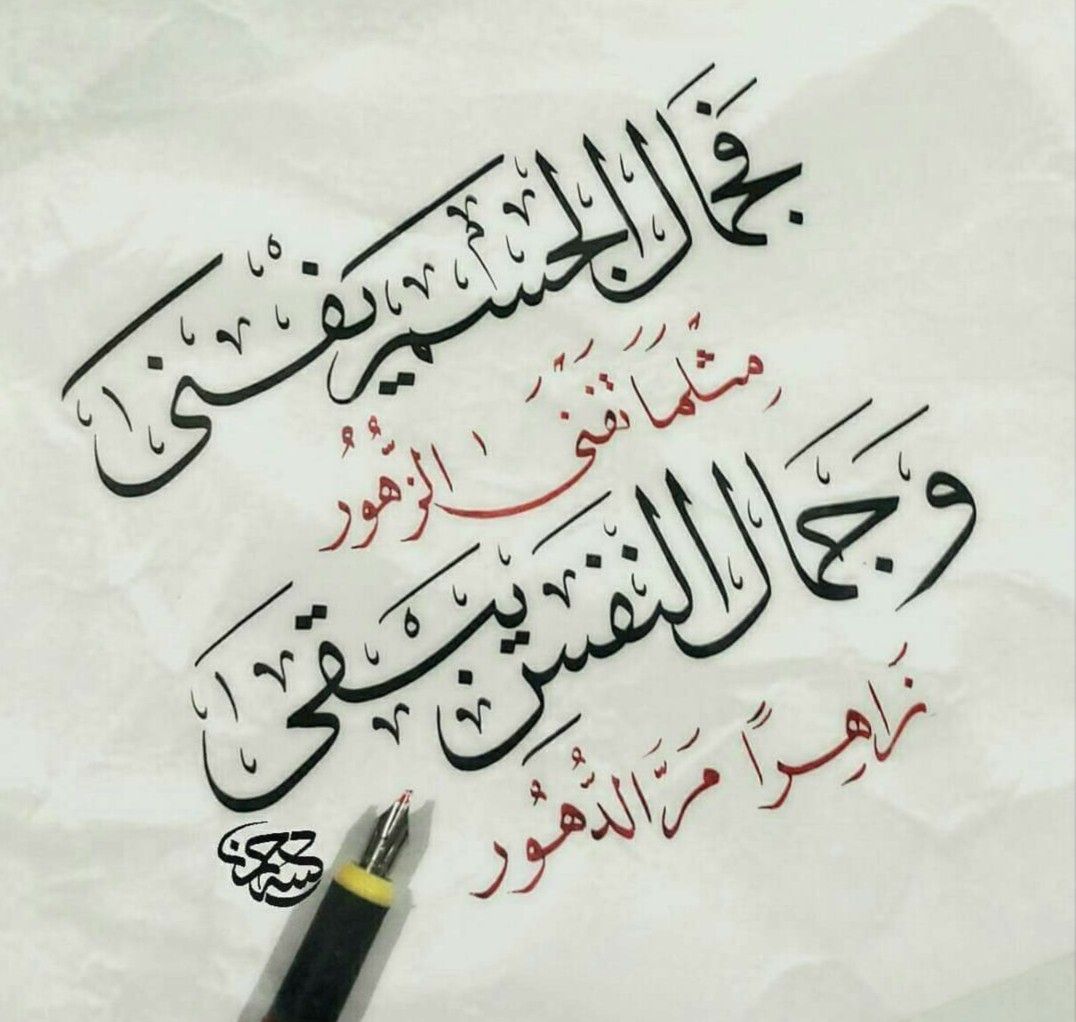 فجمال الجسم يفنى
مِثلَما تَفنَى الزُّهُورُ
وَجَمال النفسِ يبقى
زَاهِراً مَرَّ الدُّهُور